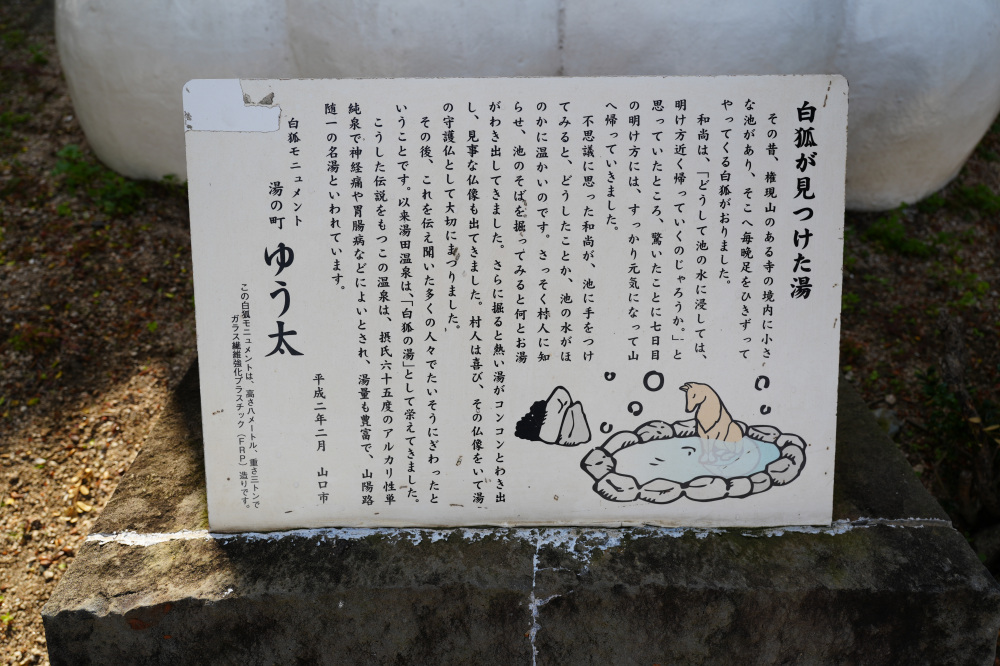 白狐が見つけた湯
その昔、権現山のある寺の境内に小さ
な池があり、そこへ毎晩足をひきずって
やってくる白狐がおりました。
和尚は、「どうして池の水に浸しては、
明け方近く帰っていくのじゃろうか。」と
思っていたところ、驚いたことに七日目
の明け方には、すっかり元気になって山
へ帰っていきました。
不思議に思った和尚が、池に手をつけ
てみると、どうしたことか、池の水がほ
のかに温かいのです。さっそく村人に知
らせ、池のそばを掘ってみると何とお湯
がわき出してきました。さらに掘ると熱い湯がコンコンとわき出
し、見事な仏像も出てきました。村人は喜び、その仏像をいで湯
の守護仏として大切にまつりました。
その後、これを伝え聞いた多くの人々でたいそうにぎわったと
いうことです。以来湯田温泉は、「白狐の湯」として栄えてきました。
こうした伝説をもつこの温泉は、摂氏六十五度のアルカリ性単
純泉で神経痛や胃腸病などによいとされ、湯量も豊富で、山陽路
随一の名湯といわれています。
平成二年二月 山口市
白狐モニュメント
湯の町 ゆう太
この白狐モニュメントは、高さ八メートル、重さ三トンで
ガラス繊維強化プラスチック(FRP)造りです。